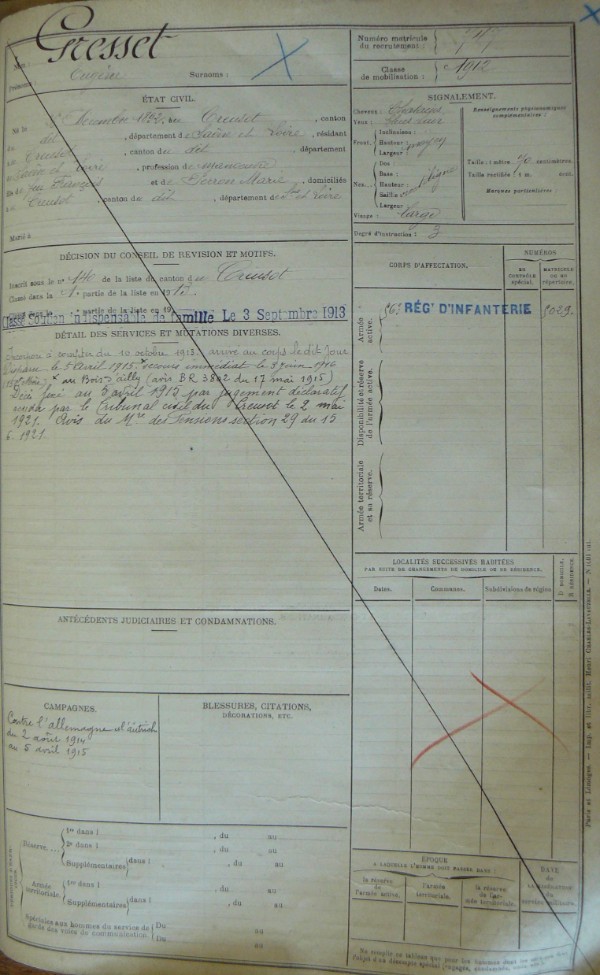 Gresset
Nom :
Prénoms : Eugène Surnoms :
Numéro matricule du recrutement :
Classe de mobilisation : 1912
ÉTAT CIVIL.
Né le Décembre 1892, au Creusot, canton
du dit, département de Saône et Loire, résidant
au Creusot, canton du dit, département
de Saône et Loire, profession de manœuvre
fils de feu François et de Marie, domiciliés
au Creusot, canton du dit, département de S. et Loire
Marié à
SIGNALEMENT.
Cheveux : Châtains
Yeux :
Front. Inclinaison :
Hauteur : moyen
Largeur :
Nez. Dos :
Base :
Hauteur :
Saillie :
Largeur :
Visage : large
Renseignements physionomiques complémentaires :
Taille : 1 mètre 70 centimètres.
Taille rectifiée : 1 m. cent.
Marques particulières :
Degré d'instruction : 3
DÉCISION DU CONSEIL DE RÉVISION ET MOTIFS.
Inscrit sous le n° 140 de la liste de canton du Creusot
Classé dans la 1e partie de la liste en 1913.
Classé dans la partie de la liste en 19
Classé Soutien indispensable de famille Le 3 Septembre 1913
DÉTAIL DES SERVICES ET MUTATIONS DIVERSES.
Incorporé à compter du 10 octobre 1913. arrivé au corps le dit jour
Disparu le 5 avril 1915. secours immédiat le 3 juin 1916
au Bois d'ailly (avis BR 3802 du 17 mai 1915)
Décès fixé au 5 avril 1915 par jugement déclaratif
rendu par le Tribunal civil du Creusot le 2 mai
1921. Avis du Mre des Pensions section 29 du 15
6. 1921.
CORPS D'AFFECTATION.
NUMÉROS
AU CONTRÔLE spécial.
MATRICULE OU AU répertoire.
Armée active.
56e RÉGt D'INFANTERIE
5029
Disponibilité et réserve de l'armée active.
Armée territoriale et sa réserve.
LOCALITÉS SUCCESSIVES HABITÉES
PAR SUITE DE CHANGEMENTS DE DOMICILE OU DE RÉSIDENCE.
Dates.
Communes.
Subdivisions de région
D. DOMICILE, R. RÉSIDENCE.
ANTÉCÉDENTS JUDICIAIRES ET CONDAMNATIONS.
CAMPAGNES.
Contre l'allemagne et l'autriche
du 2 août 1914
au 5 avril 1915
BLESSURES, CITATIONS,
DÉCORATIONS, ETC.
Réserve
1re dans l , du au
2e dans l , du au
Supplémentaires dans l , du au
Armée territoriale.
1re dans l , du au
Supplémentaires dans l , du au
Spéciales aux hommes du service de
garde des voies de communication.
Du au
Du au
ÉPOQUE
À LAQUELLE L'HOMME DOIT PASSER DANS :
la réserve de l'armée active.
l'armée territoriale.
la réserve de l'armée territoriale.
DATE
de la libération du service militaire.
Paris et Limoges. — Imp. et libr. milit. Henri CHARLES-LAVAUZELLE.